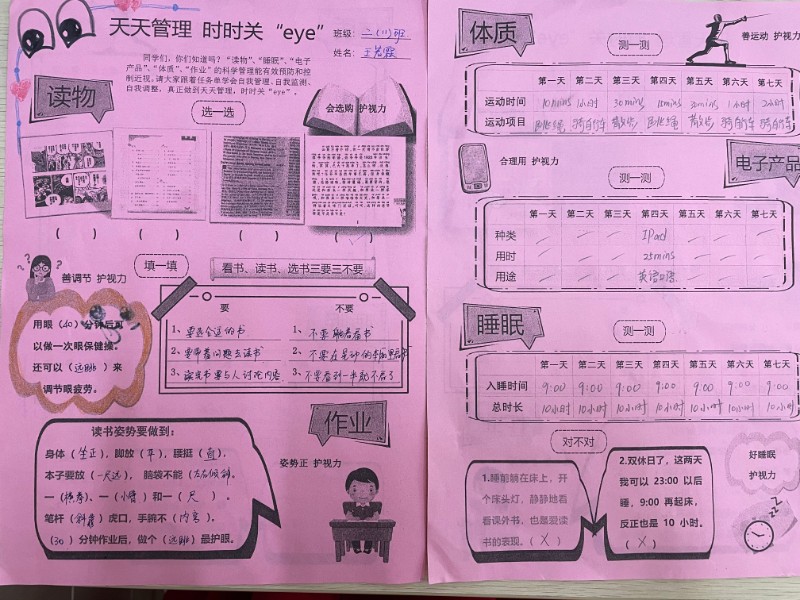 天天管理 时时关 “eye”
班级：二（11）班
姓名：
同学们，你们知道吗？“读物”、“睡眠”、“电子
产品”、“体质”、“作业”的科学管理能有效预防和控
制近视，请大家跟着任务单学会自我管理，自我监测、
自我调整，真正做到天天管理，时时关“eye”。
读物
选一选
会选购 护视力
（ ） （ ） （ ） （✓）
善调节 护视力
填一填
看书、读书、选书三要三不要
用眼（40）分钟后可
以做一次眼保健操。
还可以（远眺）来
调节眼疲劳。
要 不要
1、要买合适的书 1、不要躺着看书
2、要带着问题去读书 2、不要在晃动的车厢里看书
3、读完书要与人讨论内容 3、不要看到一半就不看了
读书姿势要做到：
身体（坐正），脚放（平），腰挺（直），
本子要放（一尺远），脑袋不能（左右倾斜）。
一（拳）、一（小臂）和一（尺）。
笔杆（斜靠）虎口，手腕不（内弯）。
（30）分钟作业后，做个（远眺）最护眼。
作业
姿势正 护视力
体质
测一测
善运动 护视力
第一天 第二天 第三天 第四天 第五天 第六天 第七天
运动时间 10mins 1小时 30mins 10mins 30mins 1小时 2小时
运动项目 跳绳 骑自行车 散步 跳绳 散步 骑自行车 骑自行车
合理用 护视力
测一测
电子产品
第一天 第二天 第三天 第四天 第五天 第六天 第七天
种类 — — — IPad — — —
用时 — — — 25mins — — —
用途 — — — 英语口语 — — —
睡眠
测一测
第一天 第二天 第三天 第四天 第五天 第六天 第七天
入睡时间 9:00 9:00 9:00 9:00 9:00 9:00 9:00
总时长 10小时 10小时 10小时 10小时 10小时 10小时 10小时
对不对
1.睡前躺在床上，开
个床头灯，静静地看
看课外书，也是爱读
书的表现。（×）
2.双休日了，这两天
我可以 23:00 以后
睡，9:00 再起床，
反正也是 10 小时。
（×）
好睡眠
护视力